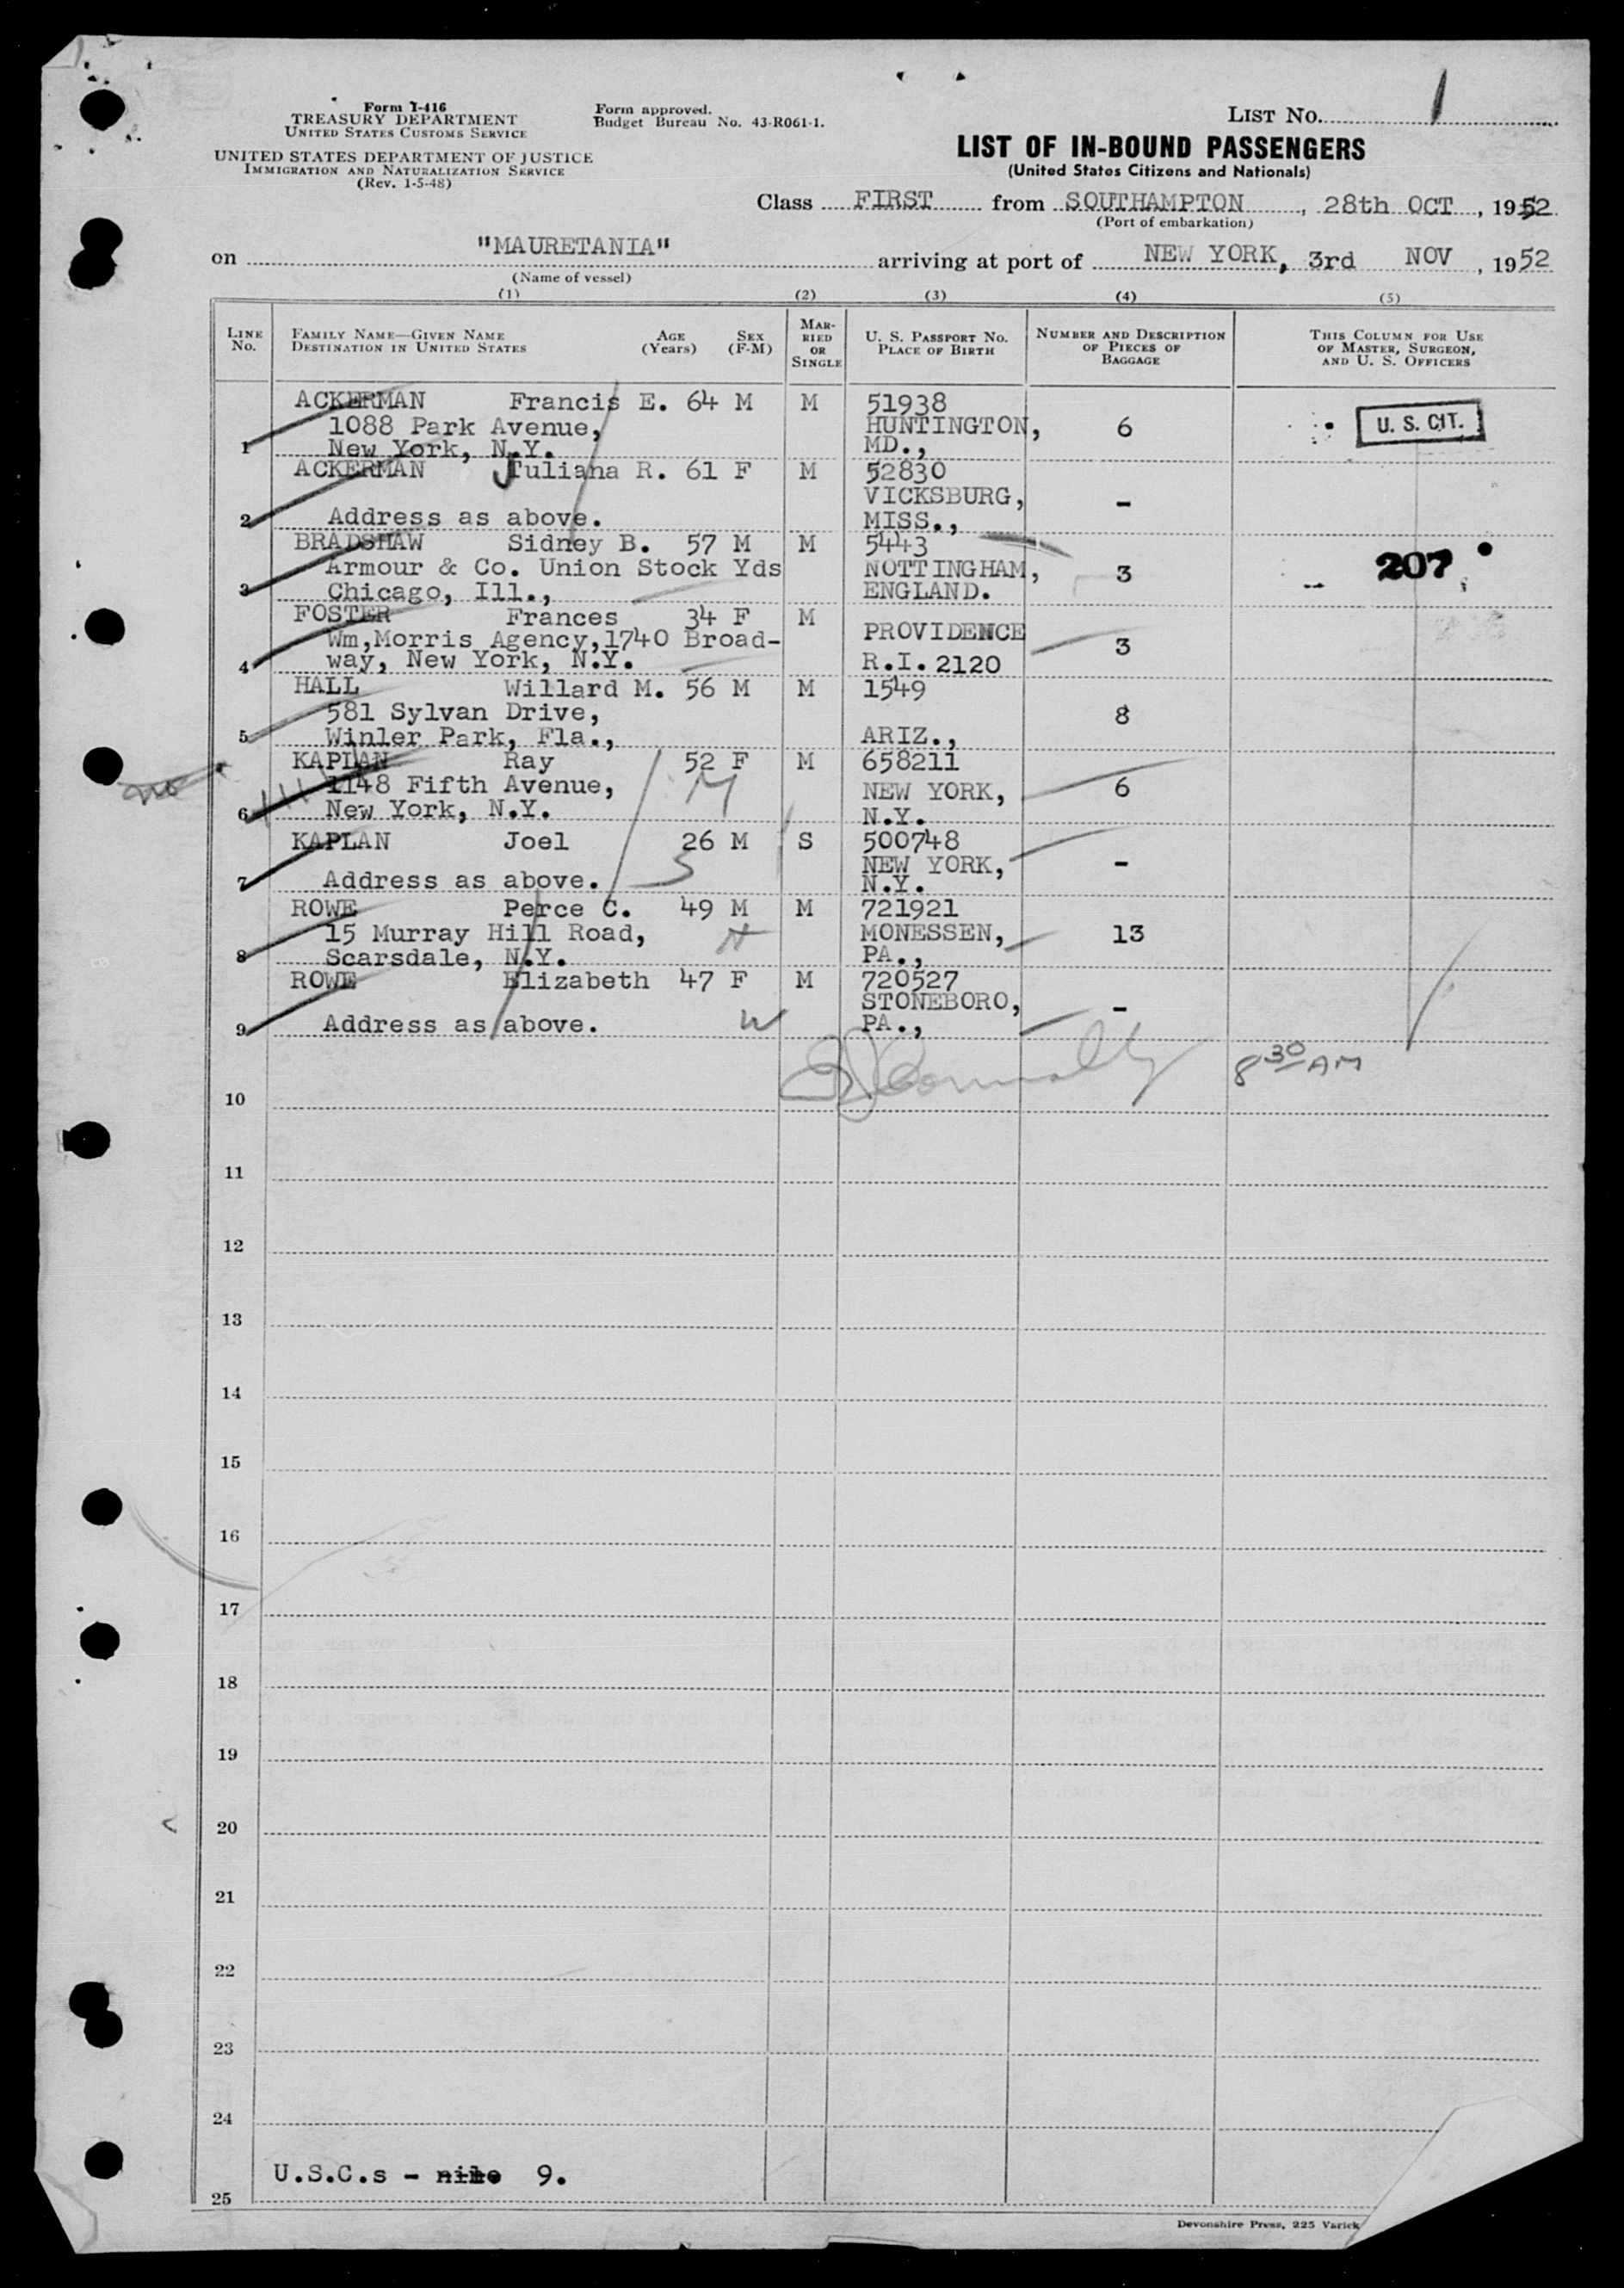 Form I-416
TREASURY DEPARTMENT
UNITED STATES CUSTOMS SERVICE
UNITED STATES DEPARTMENT OF JUSTICE
IMMIGRATION AND NATURALIZATION SERVICE
(Rev. 1-5-48)
Form approved.
Budget Bureau No. 43-R061-1.
LIST No. 1
LIST OF IN-BOUND PASSENGERS
(United States Citizens and Nationals)
Class FIRST from SOUTHAMPTON, 28th OCT, 1952
(Port of embarkation)
on "MAURETANIA" arriving at port of NEW YORK, 3rd NOV, 1952
(Name of vessel)
(1) (2) (3) (4) (5)
LINE No.
FAMILY NAME—GIVEN NAME
DESTINATION IN UNITED STATES
AGE (Years)
SEX (F-M)
MARRIED OR SINGLE
U. S. PASSPORT No.
PLACE OF BIRTH
NUMBER AND DESCRIPTION OF PIECES OF BAGGAGE
THIS COLUMN FOR USE OF MASTER, SURGEON, AND U. S. OFFICERS
ACKERMAN Francis E. 64 M M 51938
1088 Park Avenue, HUNTINGTON, 6 U. S. CIT.
1 New York, N.Y. MD.,
ACKERMAN Juliana R. 61 F M 52830
VICKSBURG, -
2 Address as above. MISS.,
BRADSHAW Sidney B. 57 M M 5443
Armour & Co. Union Stock Yds NOTTINGHAM, 3 207
3 Chicago, Ill., ENGLAND.
FOSTER Frances 34 F M
Wm,Morris Agency,1740 Broad- PROVIDENCE 3
4 way, New York, N.Y. R.I. 2120
HALL Willard M. 56 M M 1549
581 Sylvan Drive, 8
5 Winler Park, Fla., ARIZ.,
KAPLAN Ray 52 F M 658211
1148 Fifth Avenue, M NEW YORK, 6
6 New York, N.Y. N.Y.
KAPLAN Joel 26 M S 500748
S NEW YORK, -
7 Address as above. N.Y.
ROWE Perce C. 49 M M 721921
15 Murray Hill Road, H MONESSEN, 13
8 Scarsdale, N.Y. PA.,
ROWE Elizabeth 47 F M 720527
STONEBORO, -
9 Address as above. W PA.,
8 30 AM
10
11
12
13
14
15
16
17
18
19
20
21
22
23
24
U.S.C.s - 9.
25
Devonshire Press, 225 Varick